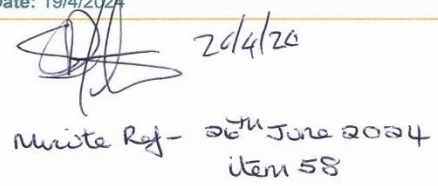 Date: 19/4/2024
Minute Ref - 26th June 2024
item 58